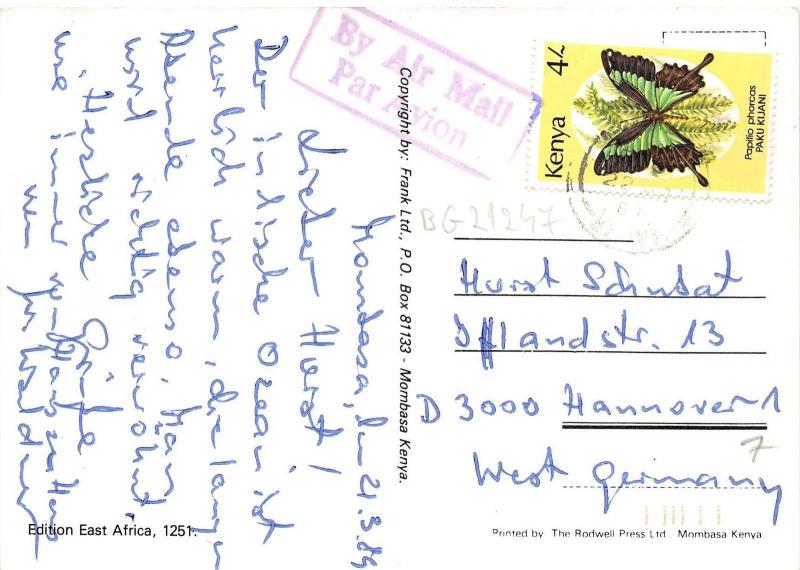 By Air Mail
Par Avion
Kenya 4/-
Papilio phorcas
PAKU KIJANI
BG21247
Mombasa, den 21.3.89
Lieber Horst!
Der indische Ozean ist
herrlich warm, die langen
Abende ebenso. Man
wird richtig verwöhnt.
Herzliche Grüße
wie immer
Copyright by: Frank Ltd., P.O. Box 81133 - Mombasa Kenya.
Horst Schubat
Ifflandstr. 13
D 3000 Hannover 1
7
West Germany
Edition East Africa, 1251.
Printed by The Rodwell Press Ltd Mombasa Kenya.